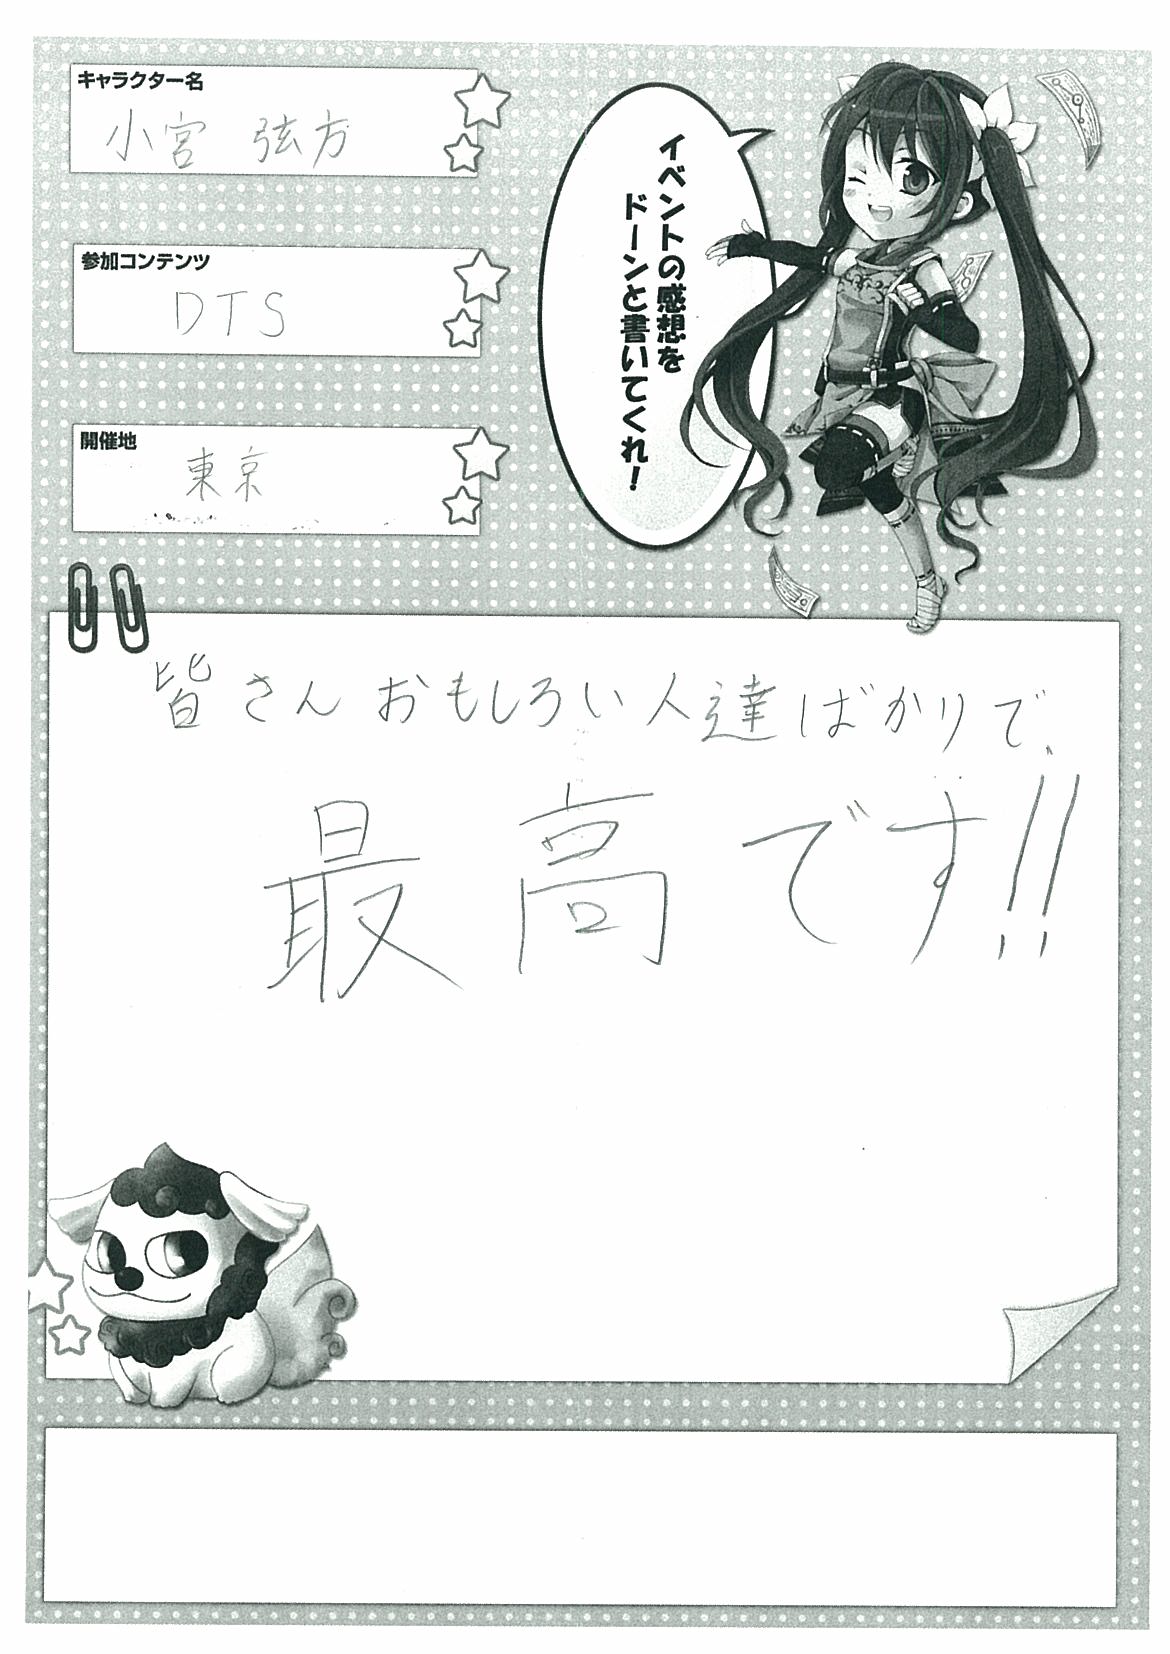 キャラクター名
小宮 弦方
参加コンテンツ
DTS
開催地
東京
イベントの感想を
ドーンと書いてくれ!
皆さんおもしろい人達ばかりで、
最高です!!